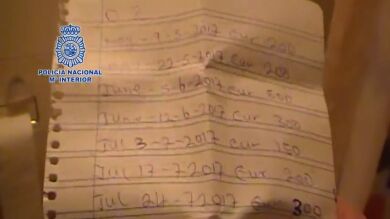 POLICÍA NACIONAL
Mº INTERIOR
9-5-2017 Eur 200
22-5-2017 Eur 200
June 5-6-2017 Eur 500
June -12-6-2017 Eur 300
Jul 3-7-2017 Eur 150
Jul 17-7 2017 Eur 200
Jul 24-7 2017 Eur 300